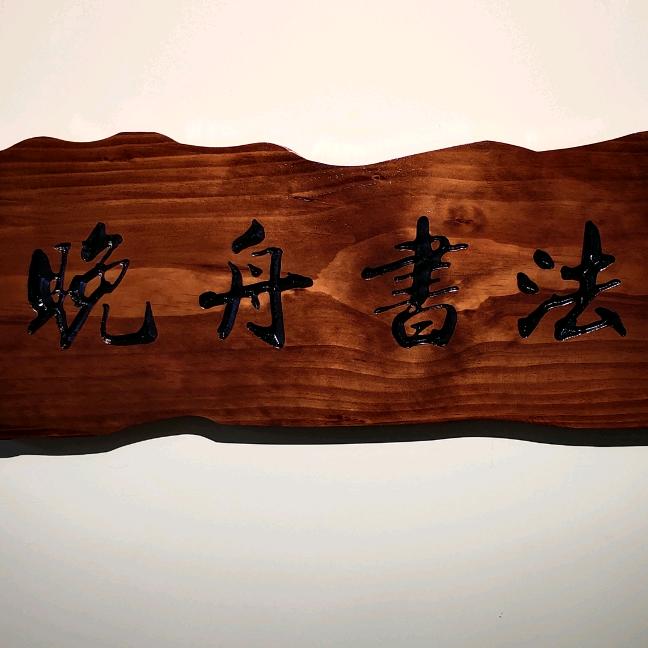 晚舟書法